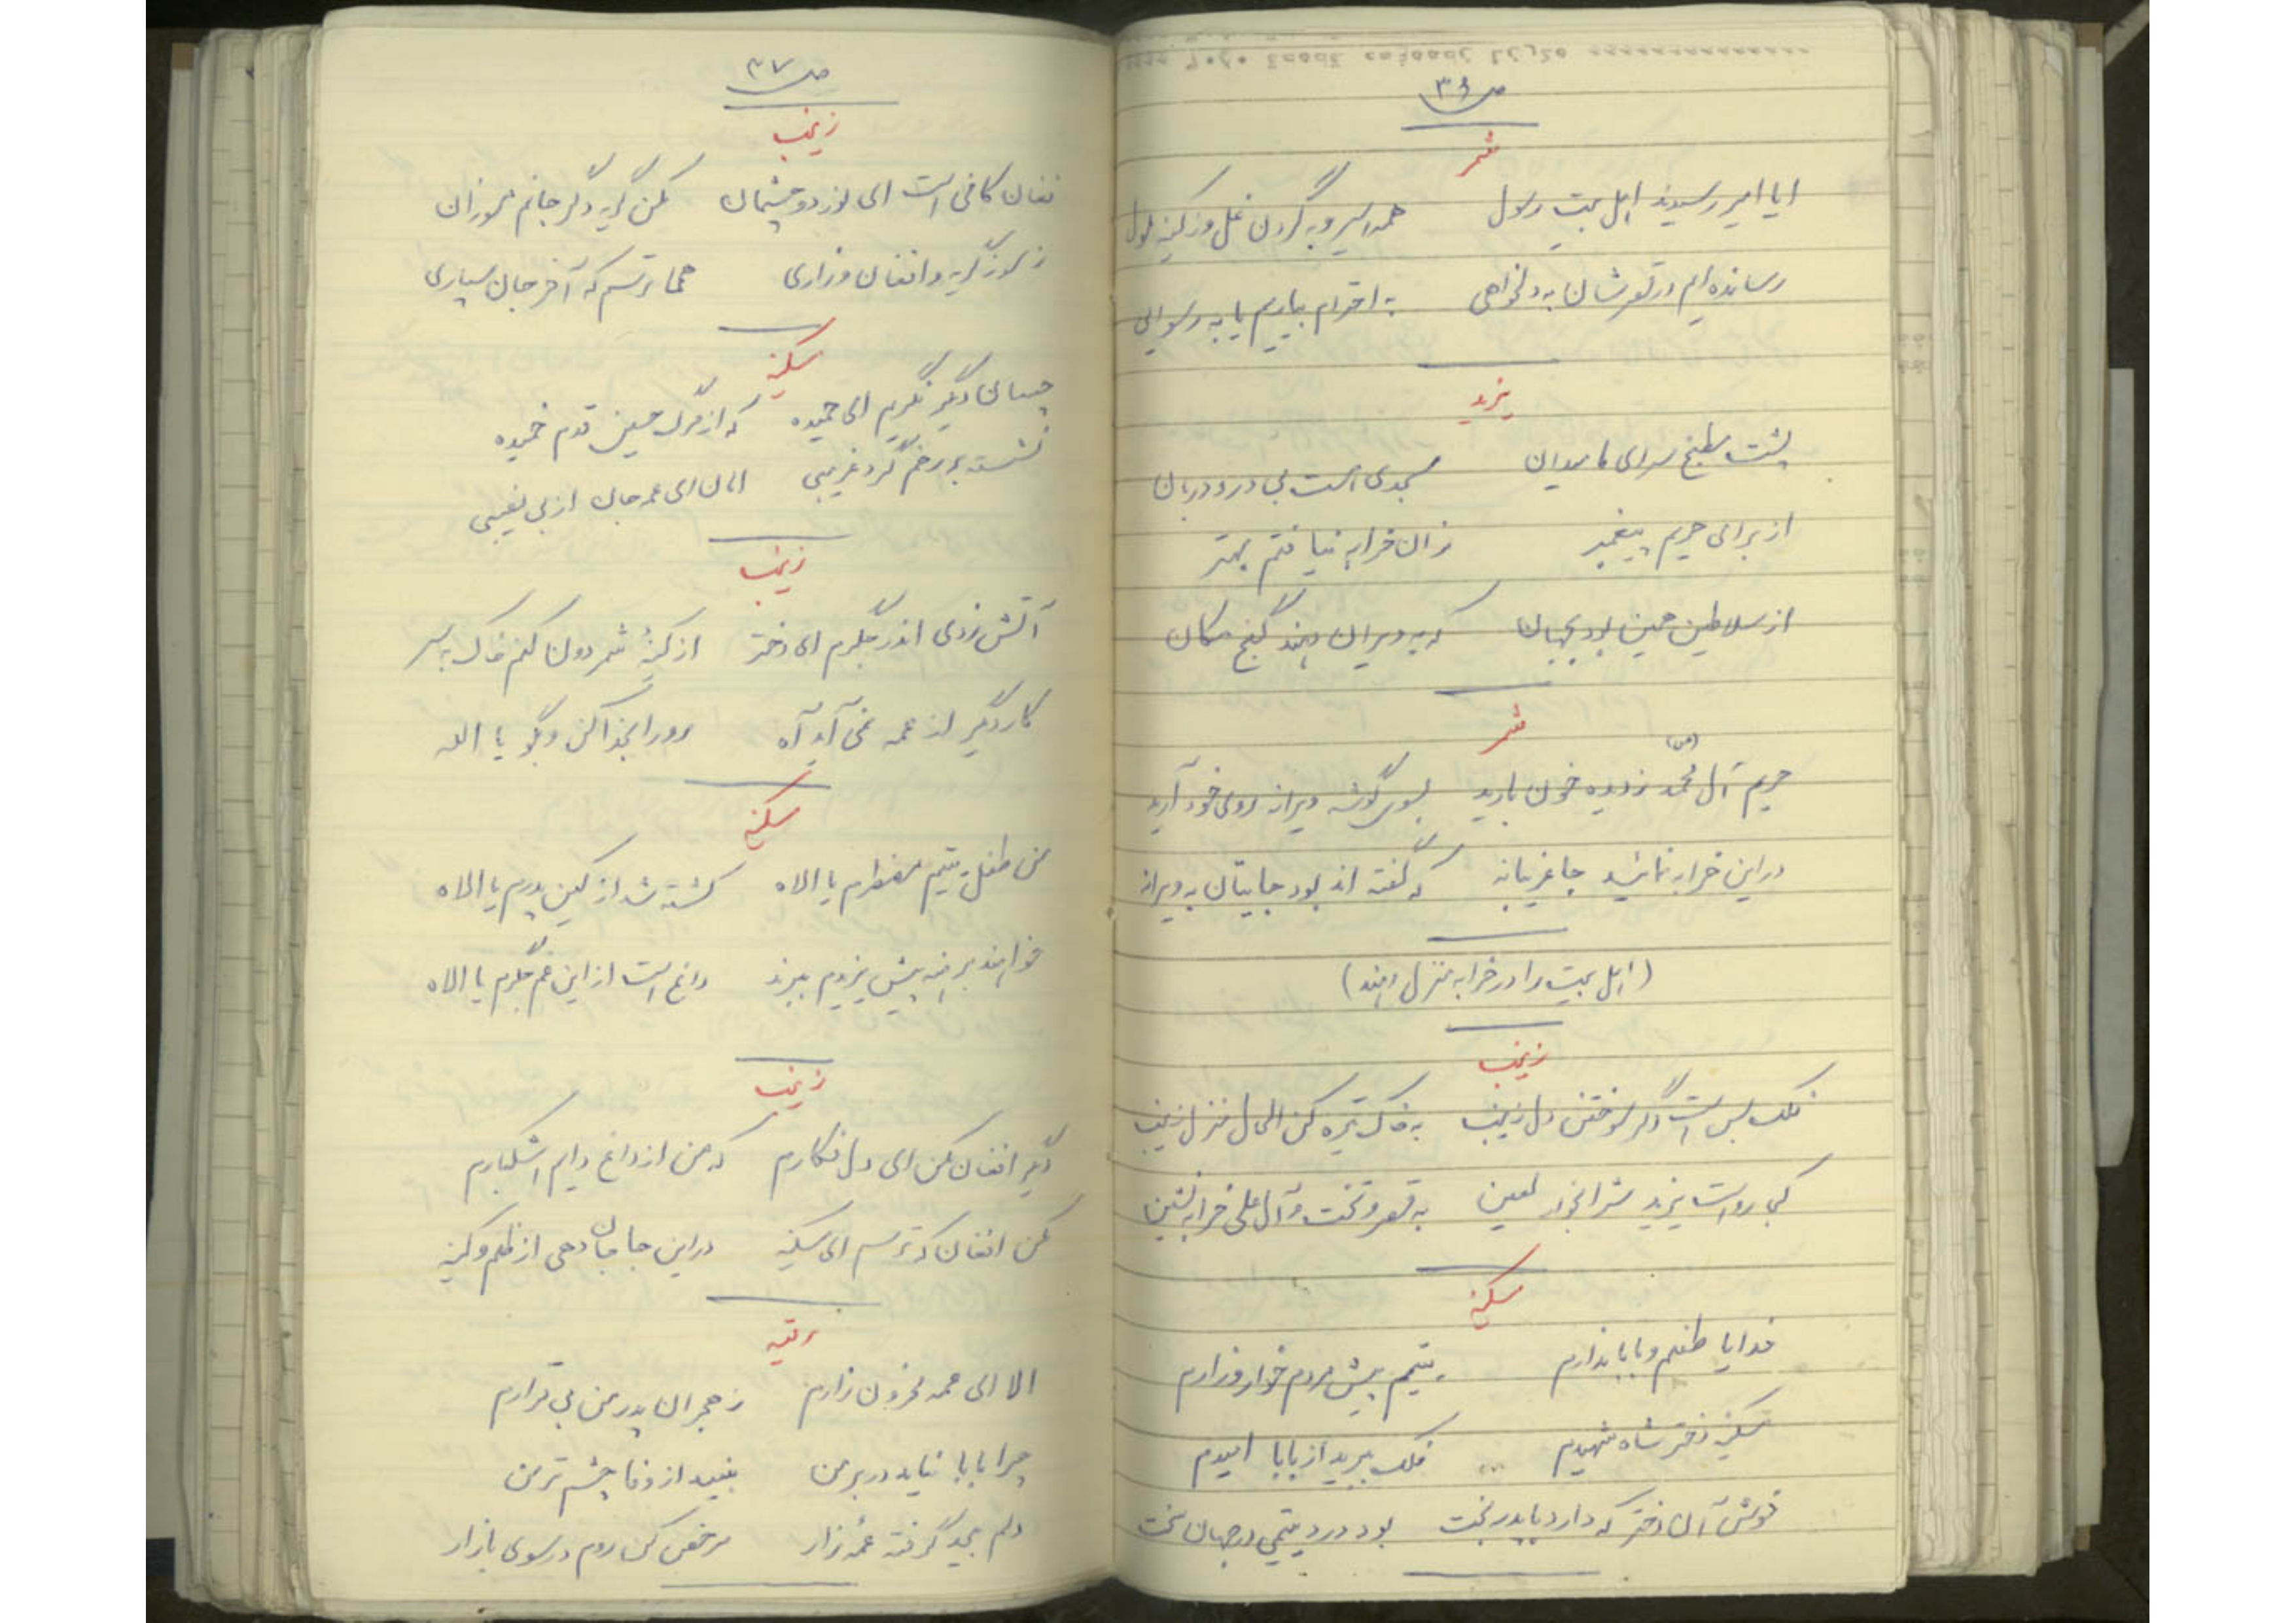 ص ۳۶
شمر
ایا امیر رسیدند اهل بیت رسول همه اسیر و به گردن غل و ز کینه ملول
رسانده ام در قصرشان به دلخواهی به احترام بیاریم یا به رسوایی
یزید
پشت مطبخ سرای ما میدان مسجدی است بی در و دربان
از برای حریم پیغمبر زان خرابه نیافتم بهتر
از سلاطین همین بود بجهان که به ویران دهند گنج مکان
شمر
حریم آل محمد (ص) ز دیده خون بارید بسوی گوشه ویرانه روی خود آرید
در این خرابه نمائید جا غریبانه که گفته اند بود جایتان به ویرانه
(اهل بیت را در خرابه منزل دهند)
زینب
فلک بس است دگر سوختن دل زینب به خاک تیره کن الحال منزل زینب
کجا رواست یزید شرابخوار لعین به قصر و تخت و آل علی خرابه نشین
سکینه
خدایا طفلم و بابا ندارم یتیم پیش مردم خوار و زارم
سکینه دختر شاه شهیدم فلک ببرید از بابا امیدم
خوش آن دختر که دارد با پدر بخت بود درد یتیمی در جهان سخت
ص ۳۷
زینب
فغان کافی است ای نور دو چشمان مکن گریه دگر جانم مسوزان
ز سوز گریه و افغان و زاری همی ترسم که آخر جان سپاری
سکینه
چسان دیگر نگریم ای حمیده که از مرگ حسین قدم خمیده
نشسته بر رخم گرد غریبی امان ای عمه جان از بی نصیبی
زینب
آتش زدی اندر جگرم ای دختر از کینهٔ شمر دون کنم خاک به سر
کار دیگر از عمه نمی آید آه رو را بخدا کن و بگو یا الله
سکینه
من طفل یتیم مضطرم یا الاه کشته شد از کین پدرم یا الاه
خواهند برهنه پیش یزیدم ببرند داغ است از این غم جگرم یا الاه
زینب
دگر افغان مکن ای دل فکارم که من از داغ دایم اشکبارم
مکن افغان که ترسم ای سکینه در این جا جان دهی از ظلم و کینه
رقیه
الا ای عمه محزون زارم ز هجران پدر من بی قرارم
چرا بابا نیاید در بر من نبیند از وفا چشم تر من
دلم بیجد گرفته عمهٔ زار مرخص کن روم در سوی بازار